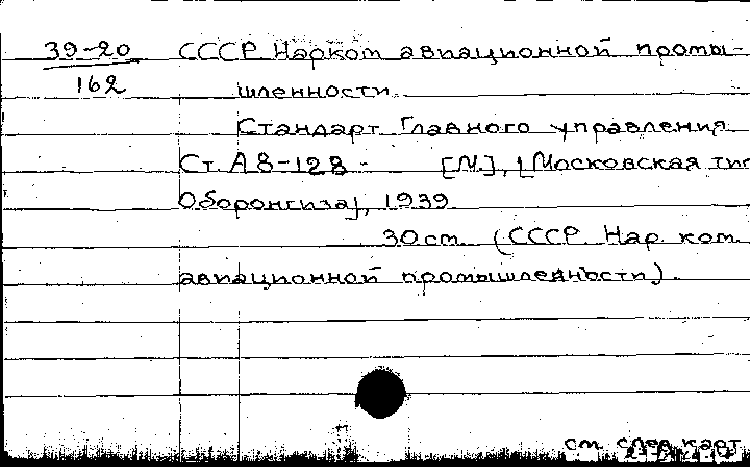 39-20 СССР. Нарком авиационной промы-
162 шленности.
Стандарт Главного управления
Ст. А8-128 - [М.], [Московская тип.
Оборонгиза], 1939
30 cm. (СССР. Нар. ком.
авиационной промышленности).
см. след. карт.